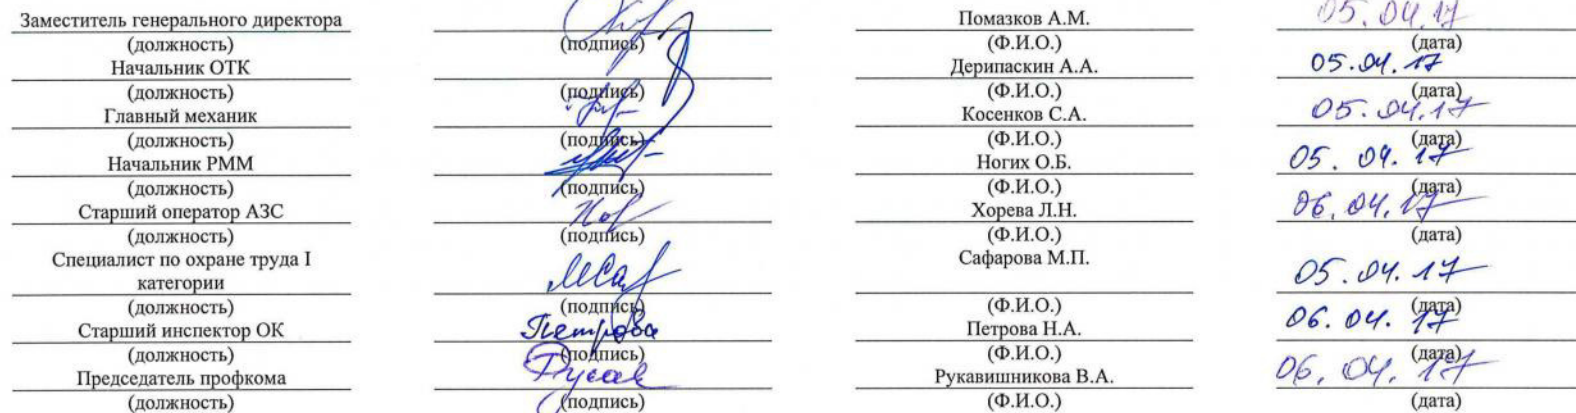 Заместитель генерального директора Помазков А.М. 05.04.17
(должность) (подпись) (Ф.И.О.) (дата)
Начальник ОТК Дерипаскин А.А. 05.04.17
(должность) (подпись) (Ф.И.О.) (дата)
Главный механик Косенков С.А. 05.04.17
(должность) (подпись) (Ф.И.О.) (дата)
Начальник РММ Ногих О.Б. 05.04.17
(должность) (подпись) (Ф.И.О.) (дата)
Старший оператор АЗС Хорева Л.Н. 06.04.17
(должность) (подпись) (Ф.И.О.) (дата)
Специалист по охране труда I Сафарова М.П.
категории 05.04.17
(должность) (подпись) (Ф.И.О.) (дата)
Старший инспектор ОК Петрова Петрова Н.А. 06.04.17
(должность) (подпись) (Ф.И.О.) (дата)
Председатель профкома Рукавишникова В.А. 06.04.17
(должность) (подпись) (Ф.И.О.) (дата)